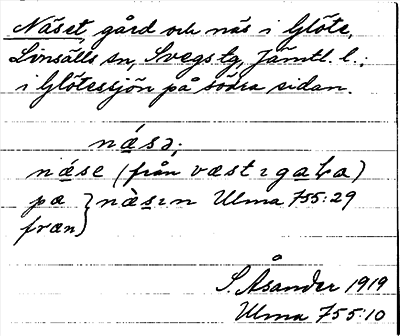 Näset, gård och näs i Glöte,
Linsälls sn, Svegs tg, Jämtl. l.;
i Glötessjön på södra sidan.
næ̀sə;
næ̀se (från væst ı gaƚa)
pæ } næ̀sın Ulma 755:29
fræn
S. Åsander 1919
Ulma 755:10